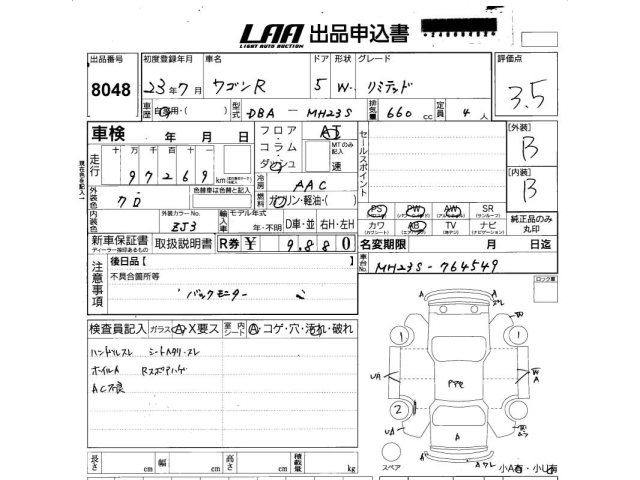 LAA 出品申込書
LIGHT AUTO AUCTION
出品番号 初度登録年月 車名 ドア 形状 グレード 評価点
8048 23年7月 ワゴンR 5 W. リミテッド 3.5
車歴 自家用・( ) 型式 DBA - MH23S 排気量 660 cc 定員 4人
車検 年 月 日 フロア AT セールスポイント 【外装】
コラム MTのみ記入 B
走行 十万千百十 97269 km ダッシュ 速 【内装】
現在色を記入↓ 冷房 AAC B
外装色 クロ 色替車は色替と記入 燃料 ガソリン・軽油・( ) PS PW AW SR 純正品のみ丸印
内装色 外装カラーNo. ZJ3 輸入車 モデル年式 年・不明 D車・並 右H・左H カワ AB TV ナビ
新車保証書 取扱説明書 R券 ¥ 9,880 名変期限 月 日迄
ディーラー捺印あるもの
注意事項 後日品【 】 車台No. MH23S-764549
不具合箇所等 ロック車
バックモニター
検査員記入 ガラス A X要ス 室内シート A・コゲ・穴・汚れ・破れ
ハンドルスレ シートヘタリ・スレ
ホイールA Rスポアハゲ
AC不良
長さ cm 幅 cm 高さ cm 積載量 kg
スペア 小A有・小U有